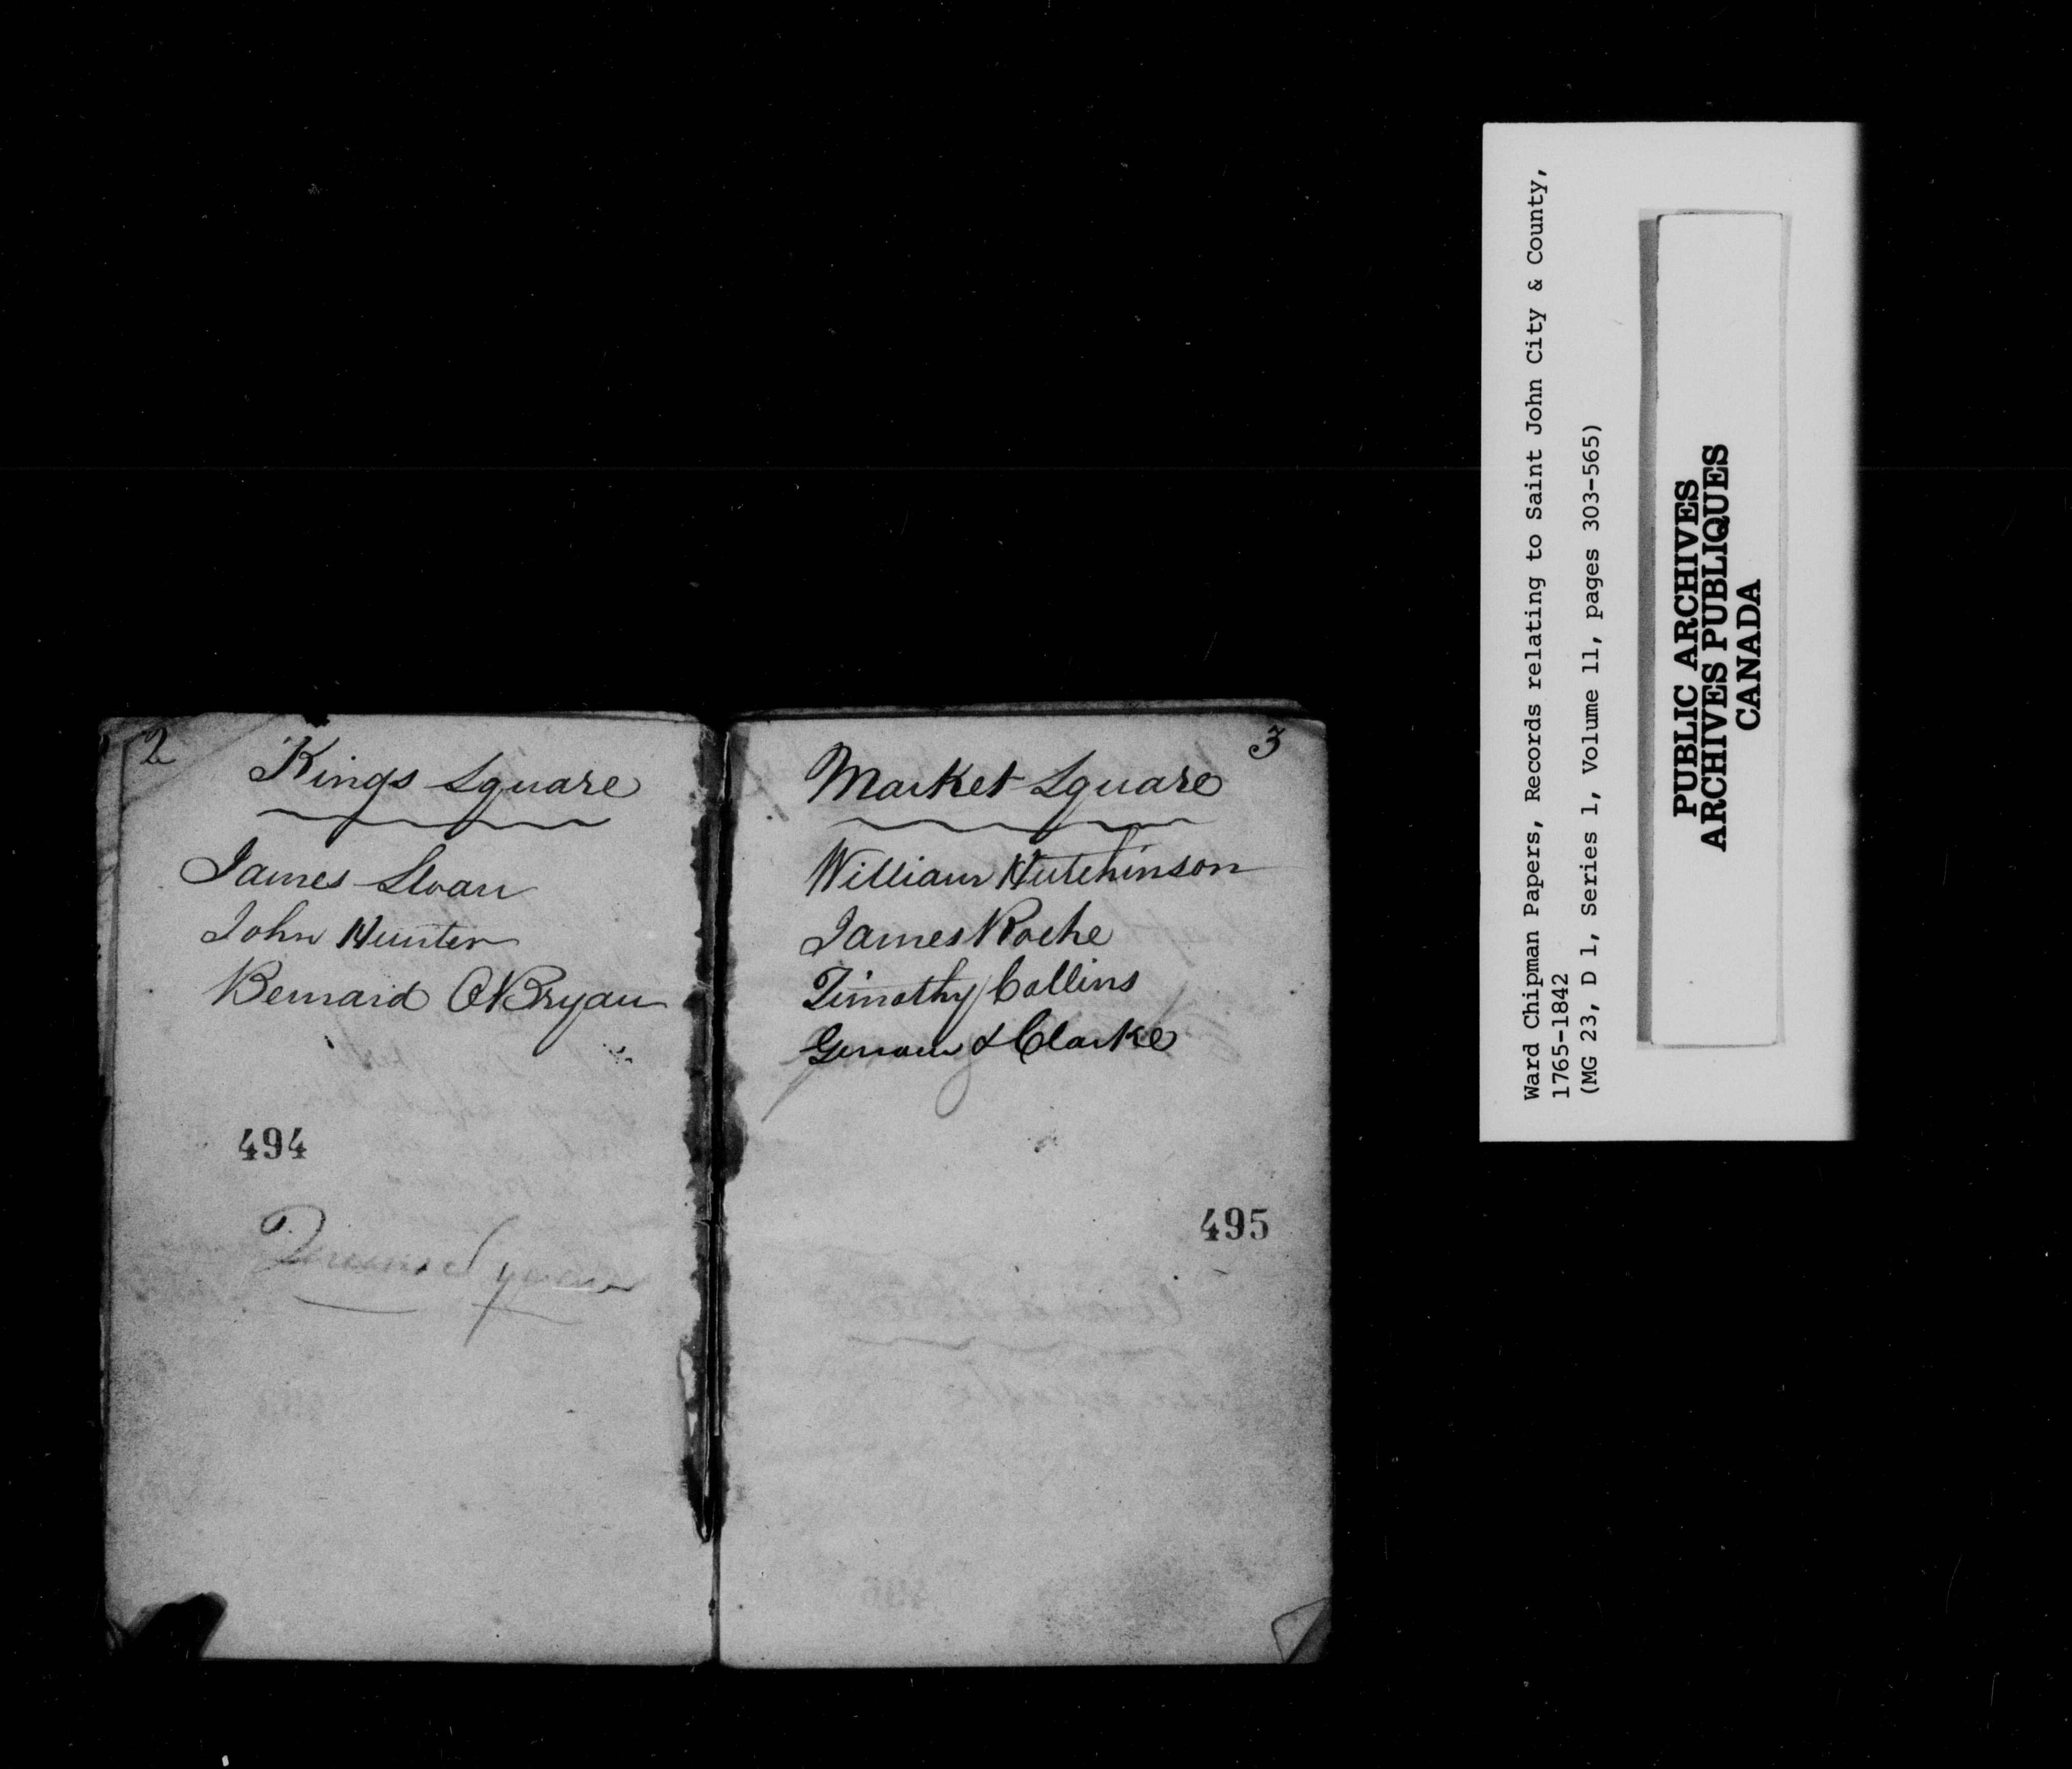 2
Kings Square
James Sloan
John Hunter
Bernard OBryan
494
3
Market Square
William Hutchinson
James Roche
Timothy Collins
& Clarke
495
Ward Chipman Papers, Records relating to Saint John City & County,
1765-1842
(MG 23, D 1, Series 1, Volume 11, pages 303-565)
PUBLIC ARCHIVES
ARCHIVES PUBLIQUES
CANADA